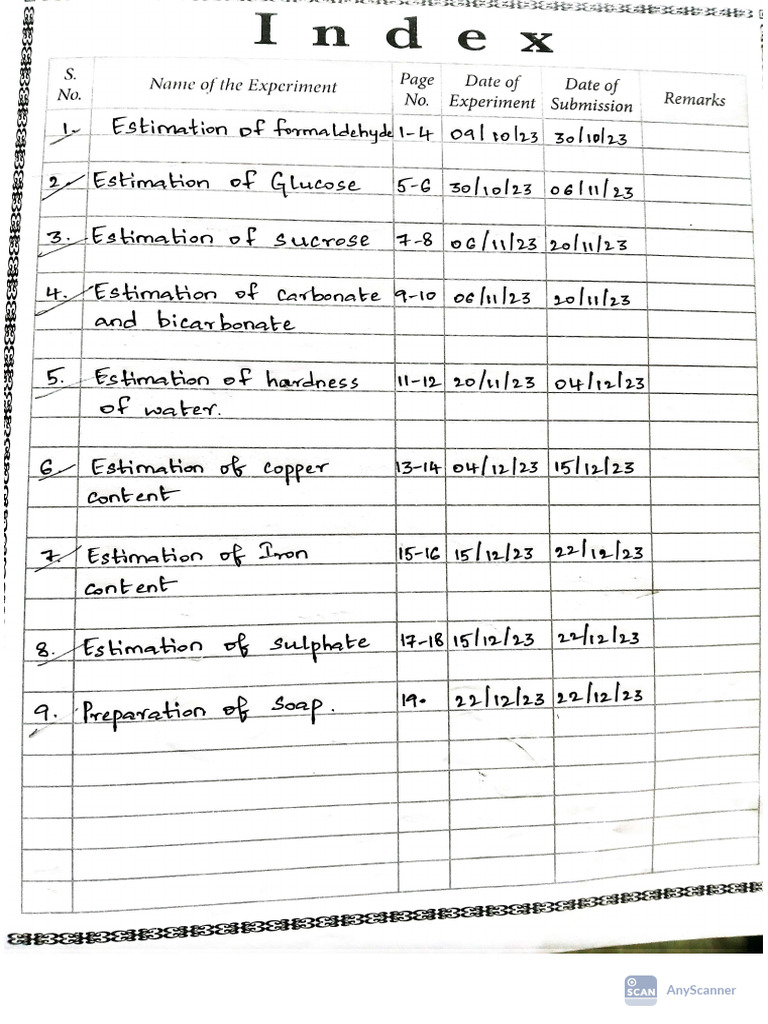 Index
S. No. Name of the Experiment Page No. Date of Experiment Date of Submission Remarks
1. Estimation of formaldehyde 1-4 09/10/23 30/10/23
2. Estimation of Glucose 5-6 30/10/23 06/11/23
3. Estimation of sucrose 7-8 06/11/23 20/11/23
4. Estimation of carbonate 9-10 06/11/23 20/11/23
and bicarbonate
5. Estimation of hardness 11-12 20/11/23 04/12/23
of water.
6. Estimation of copper 13-14 04/12/23 15/12/23
content
7. Estimation of Iron 15-16 15/12/23 22/12/23
content
8. Estimation of sulphate 17-18 15/12/23 22/12/23
9. Preparation of Soap. 19. 22/12/23 22/12/23
SCAN AnyScanner